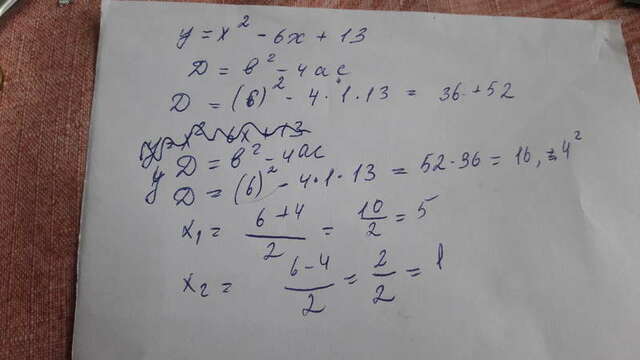 y = x² - 6x + 13
D = b² - 4ac
D = (6)² - 4·1·13 = 36 + 52
y = x² - 6x + 13
y D = b² - 4ac
D = (6)² - 4·1·13 = 52 - 36 = 16, = 4²
x₁ = (6+4)/2 = 10/2 = 5
x₂ = (6-4)/2 = 2/2 = 1